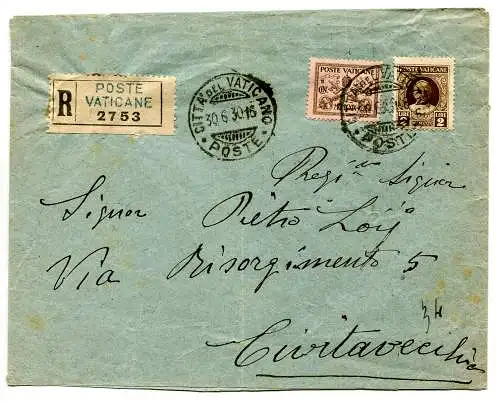 R
POSTE
VATICANE
2753
CITTA' DEL VATICANO
30.6.30.16
POSTE
POSTE VATICANE
POSTE VATICANE
LIRE 2 LIRE
POSTE
Signor
Pietro
Via Risorgimento 5
34
Civitavecchia